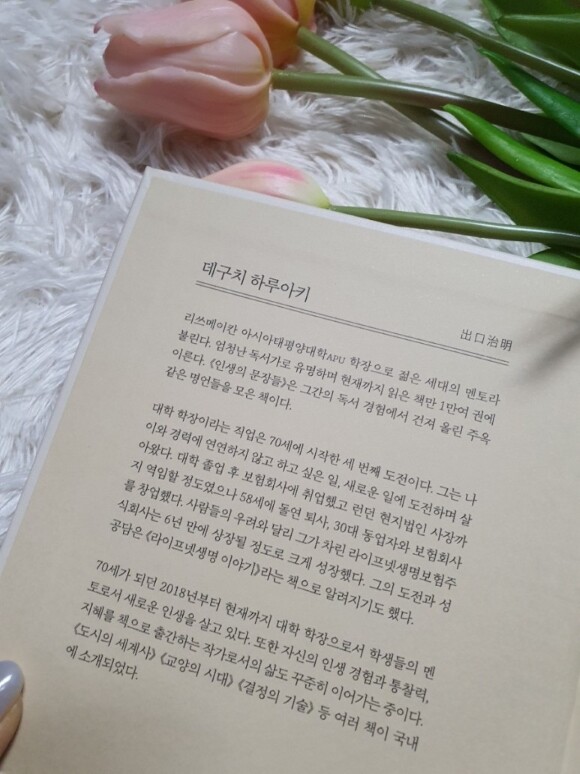 데구치 하루아키
出口治明
리쓰메이칸 아시아태평양대학APU 학장으로 젊은 세대의 멘토라
불린다. 엄청난 독서가로 유명하며 현재까지 읽은 책만 1만여 권에
이른다. 《인생의 문장들》은 그간의 독서 경험에서 건져 올린 주옥
같은 명언들을 모은 책이다.
대학 학장이라는 직업은 70세에 시작한 세 번째 도전이다. 그는 나
이와 경력에 연연하지 않고 하고 싶은 일, 새로운 일에 도전하며 살
아왔다. 대학 졸업 후 보험회사에 취업했고 런던 현지법인 사장까
지 역임할 정도였으나 58세에 돌연 퇴사, 30대 동업자와 보험회사
를 창업했다. 사람들의 우려와 달리 그가 차린 라이프넷생명보험주
식회사는 6년 만에 상장될 정도로 크게 성장했다. 그의 도전과 성
공담은 《라이프넷생명 이야기》라는 책으로 알려지기도 했다.
70세가 되던 2018년부터 현재까지 대학 학장으로서 학생들의 멘
토로서 새로운 인생을 살고 있다. 또한 자신의 인생 경험과 통찰력,
지혜를 책으로 출간하는 작가로서의 삶도 꾸준히 이어가는 중이다.
《도시의 세계사》 《교양의 시대》 《결정의 기술》 등 여러 책이 국내
에 소개되었다.